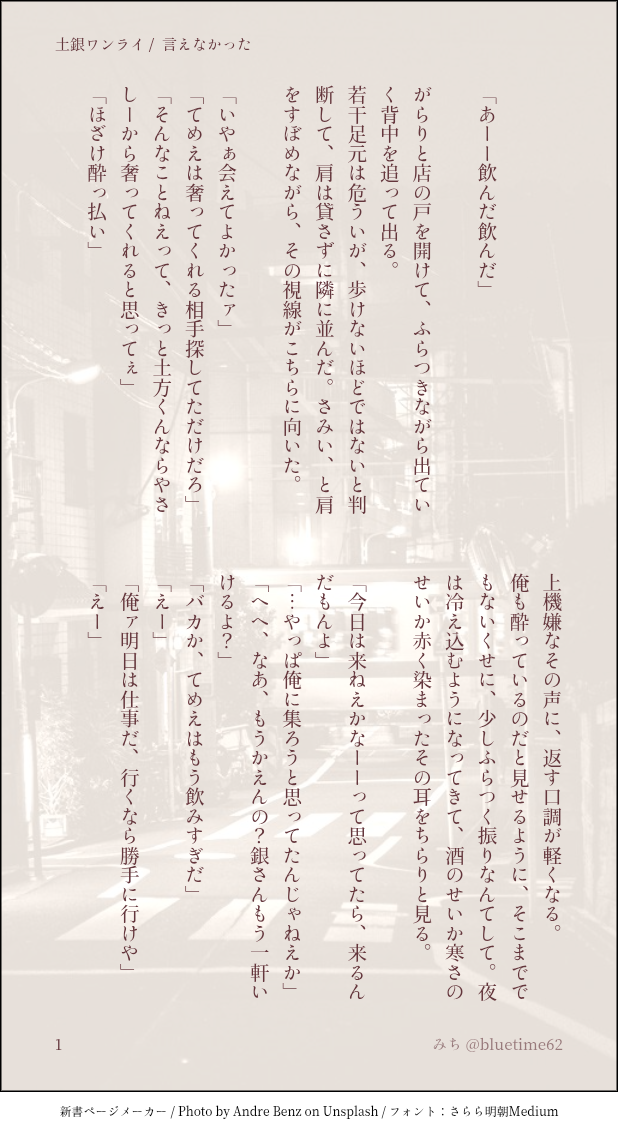 土銀ワンライ / 言えなかった
「あーー飲んだ飲んだ」
がらりと店の戸を開けて、ふらつきながら出てい
く背中を追って出る。
若干足元は危ういが、歩けないほどではないと判
断して、肩は貸さずに隣に並んだ。さみい、と肩
をすぼめながら、その視線がこちらに向いた。
「いやぁ会えてよかったァ」
「てめえは奢ってくれる相手探してただけだろ」
「そんなことねえって、きっと土方くんならやさ
しーから奢ってくれると思ってぇ」
「ほざけ酔っ払い」
上機嫌なその声に、返す口調が軽くなる。
俺も酔っているのだと見せるように、そこまでで
もないくせに、少しふらつく振りなんてして。夜
は冷え込むようになってきて、酒のせいか寒さの
せいか赤く染まったその耳をちらりと見る。
「今日は来ねえかなーーって思ってたら、来るん
だもんよ」
「…やっぱ俺に集ろうと思ってたんじゃねえか」
「へへ、なあ、もうかえんの？銀さんもう一軒い
けるよ？」
「バカか、てめえはもう飲みすぎだ」
「えー」
「俺ァ明日は仕事だ、行くなら勝手に行けや」
「えー」
1
みち @bluetime62
新書ページメーカー / Photo by Andre Benz on Unsplash / フォント：さらら明朝Medium